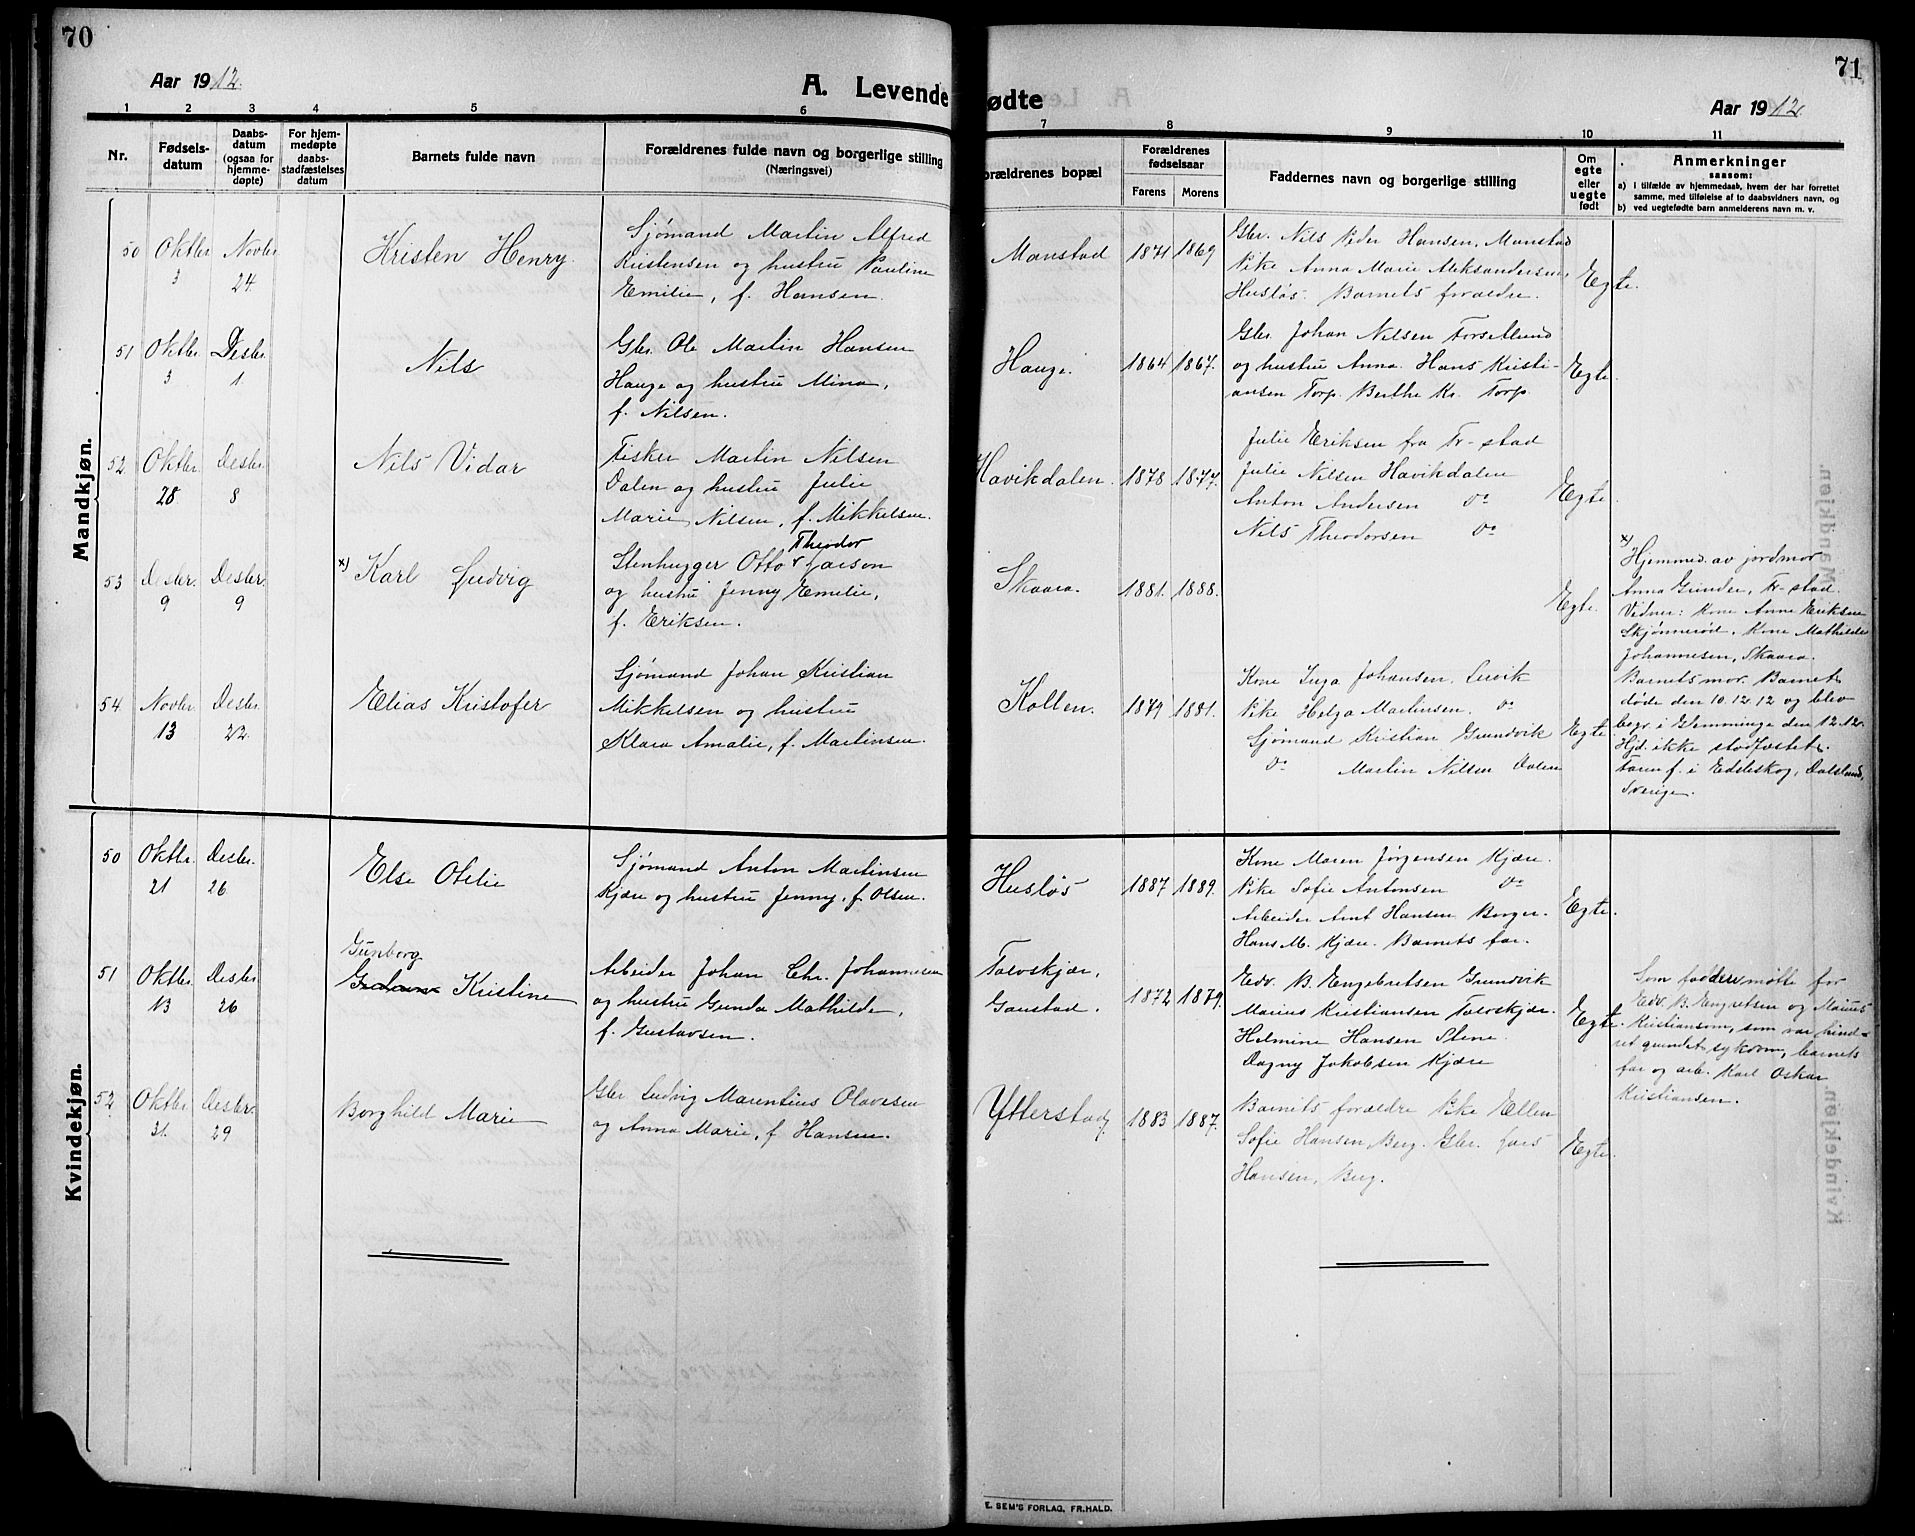 70
Aar 1912.
A. Levende
1 2 3 4 5 6
Nr.
Fødsels-
datum
Daabs-
datum
(ogsaa for
hjemme-
døpte)
For hjem-
medøpte
daabs-
stadfæstelses
datum
Barnets fulde navn
Forældrenes fulde navn og borgerlige stilling
(Næringsvei)
Mandkjøn.
50 Oktbr. 3 Novbr. 24.
Kristen Henry
Sjømand Martin Alfred
Kristensen og hustru Pauline
Emilie, f. Hansen.
51 Oktbr. 3 Desbr. 1
Nils
Gbr. Ole Martin Hansen
Hauge og hustru Mina,
f. Nilsen.
52 Oktbr. 28 Desbr. 8
Nils Vidar
Fisker Martin Nilsen
Dalen og hustru Julie
Marie Nilsen, f. Mikkelsen.
53 Desbr. 9 Desbr. 9
x) Karl Ludvig
Theodor
Stenhugger Otto v Larson
og hustru Jenny Emelie,
f. Eriksen.
54. Novbr. 13 Desbr. 22.
Elias Kristofer
Sjømand Johan Kristian
Mikkelsen og hustru
Klara Amalie, f. Martinsen.
Kvindekjøn.
50 Oktbr. 21 Desbr. 26
Else Otelie
Sjømand Anton Martinsen
Kjære og hustru Jenny, f. Olsen.
51 Oktbr. 13 Desbr. 26
Gunborg
Kristine
Arbeider Johan Chr. Johannesen
og hustru Gunda Mathilde,
f. Gustavsen.
52 Oktbr. 31. Desbr. 29
Borghild Marie
Gbr. Ludvig Marentius Olavesen
og Anna Marie, f. Hansen.
71
ødte
Aar 1912.
7 8 9 10 11
orældrenes bopæl
Forældrenes
fødselsaar
Farens Morens
Faddernes navn og borgerlige stilling
Om
egte
eller
uegte
født
Anmerkninger
saasom:
a) i tilfælde av hjemmedaab, hvem der har forrettet
samme, med tilføielse af to daabsvidners navn, og
b) ved uegtefødte barn anmelderens navn m. v.
Manstad 1871 1869
Gbr. Nils Peder Hansen, Manstad
Pike Anna Marie Aleksandersen,
Husløs. Barnets forældre.
Egte.
Hauge. 1864 1867.
Gbr. Johan Nilsen Torsetlund
og hustru Anna. Hans Kristi-
ansen Torp. Berthe Kr. Torp.
Egte.
Havikdalen. 1878 1877.
Julie Eriksen fra Fr-stad
Julie Nilsen Havikdalen
Anton Andersen Do
Nils Theodorsen Do
Egte.
Skaara. 1881. 1888.
Egte.
x)
Hjemmed. av jordmor
Anna Gunder, Fr-stad.
Vidner: Kone Anne Eriksen
Skjønnerød, Kone Mathilde
Johannesen, Skaara.
Barnets mor. Barnet
døde den 10.12.12 og blev
begr. i Glemminge den 12.12.
Hjd. ikke stadfæstet.
Faren f. i Edsleskog, Dalsland,
Sverige.
Kollen. 1879 1881.
Kone Inga Johansen. Lervik
Pike Helga Martinsen. Do
Sjømand Kristian Grundvik
Do Martin Nilsen Dalen
Egte
Husløs 1887 1889.
Kone Maren Jørgensen Kjære.
Pike Sofie Antonsen Do
Arbeider Arnt Hansen Borger.
Hans M. Kjære. Barnets far.
Egte.
Torvskjær,
Gaustad. 1872 1879.
Edv. B. Engebretsen Grundvik
Marius Kristiansen Torvskjær.
Helmine Hansen Stene.
Dagny Jakobsen Kjære
Egte.
Som faddere møtte for
Edv. B. Engretsen og Marius
Kristiansom, som var hind-
ret grundet sykdom, barnets
far og arb. Karl Oskar
Kristiansen.
Ytterstad 1883 1887.
Barnets forældre Pike Ellen
Sofie Hansen, Berg. Gbr. Lars
Hansen, Berg.
Egte.
E. SEM'S FORLAG, FR.HALD.